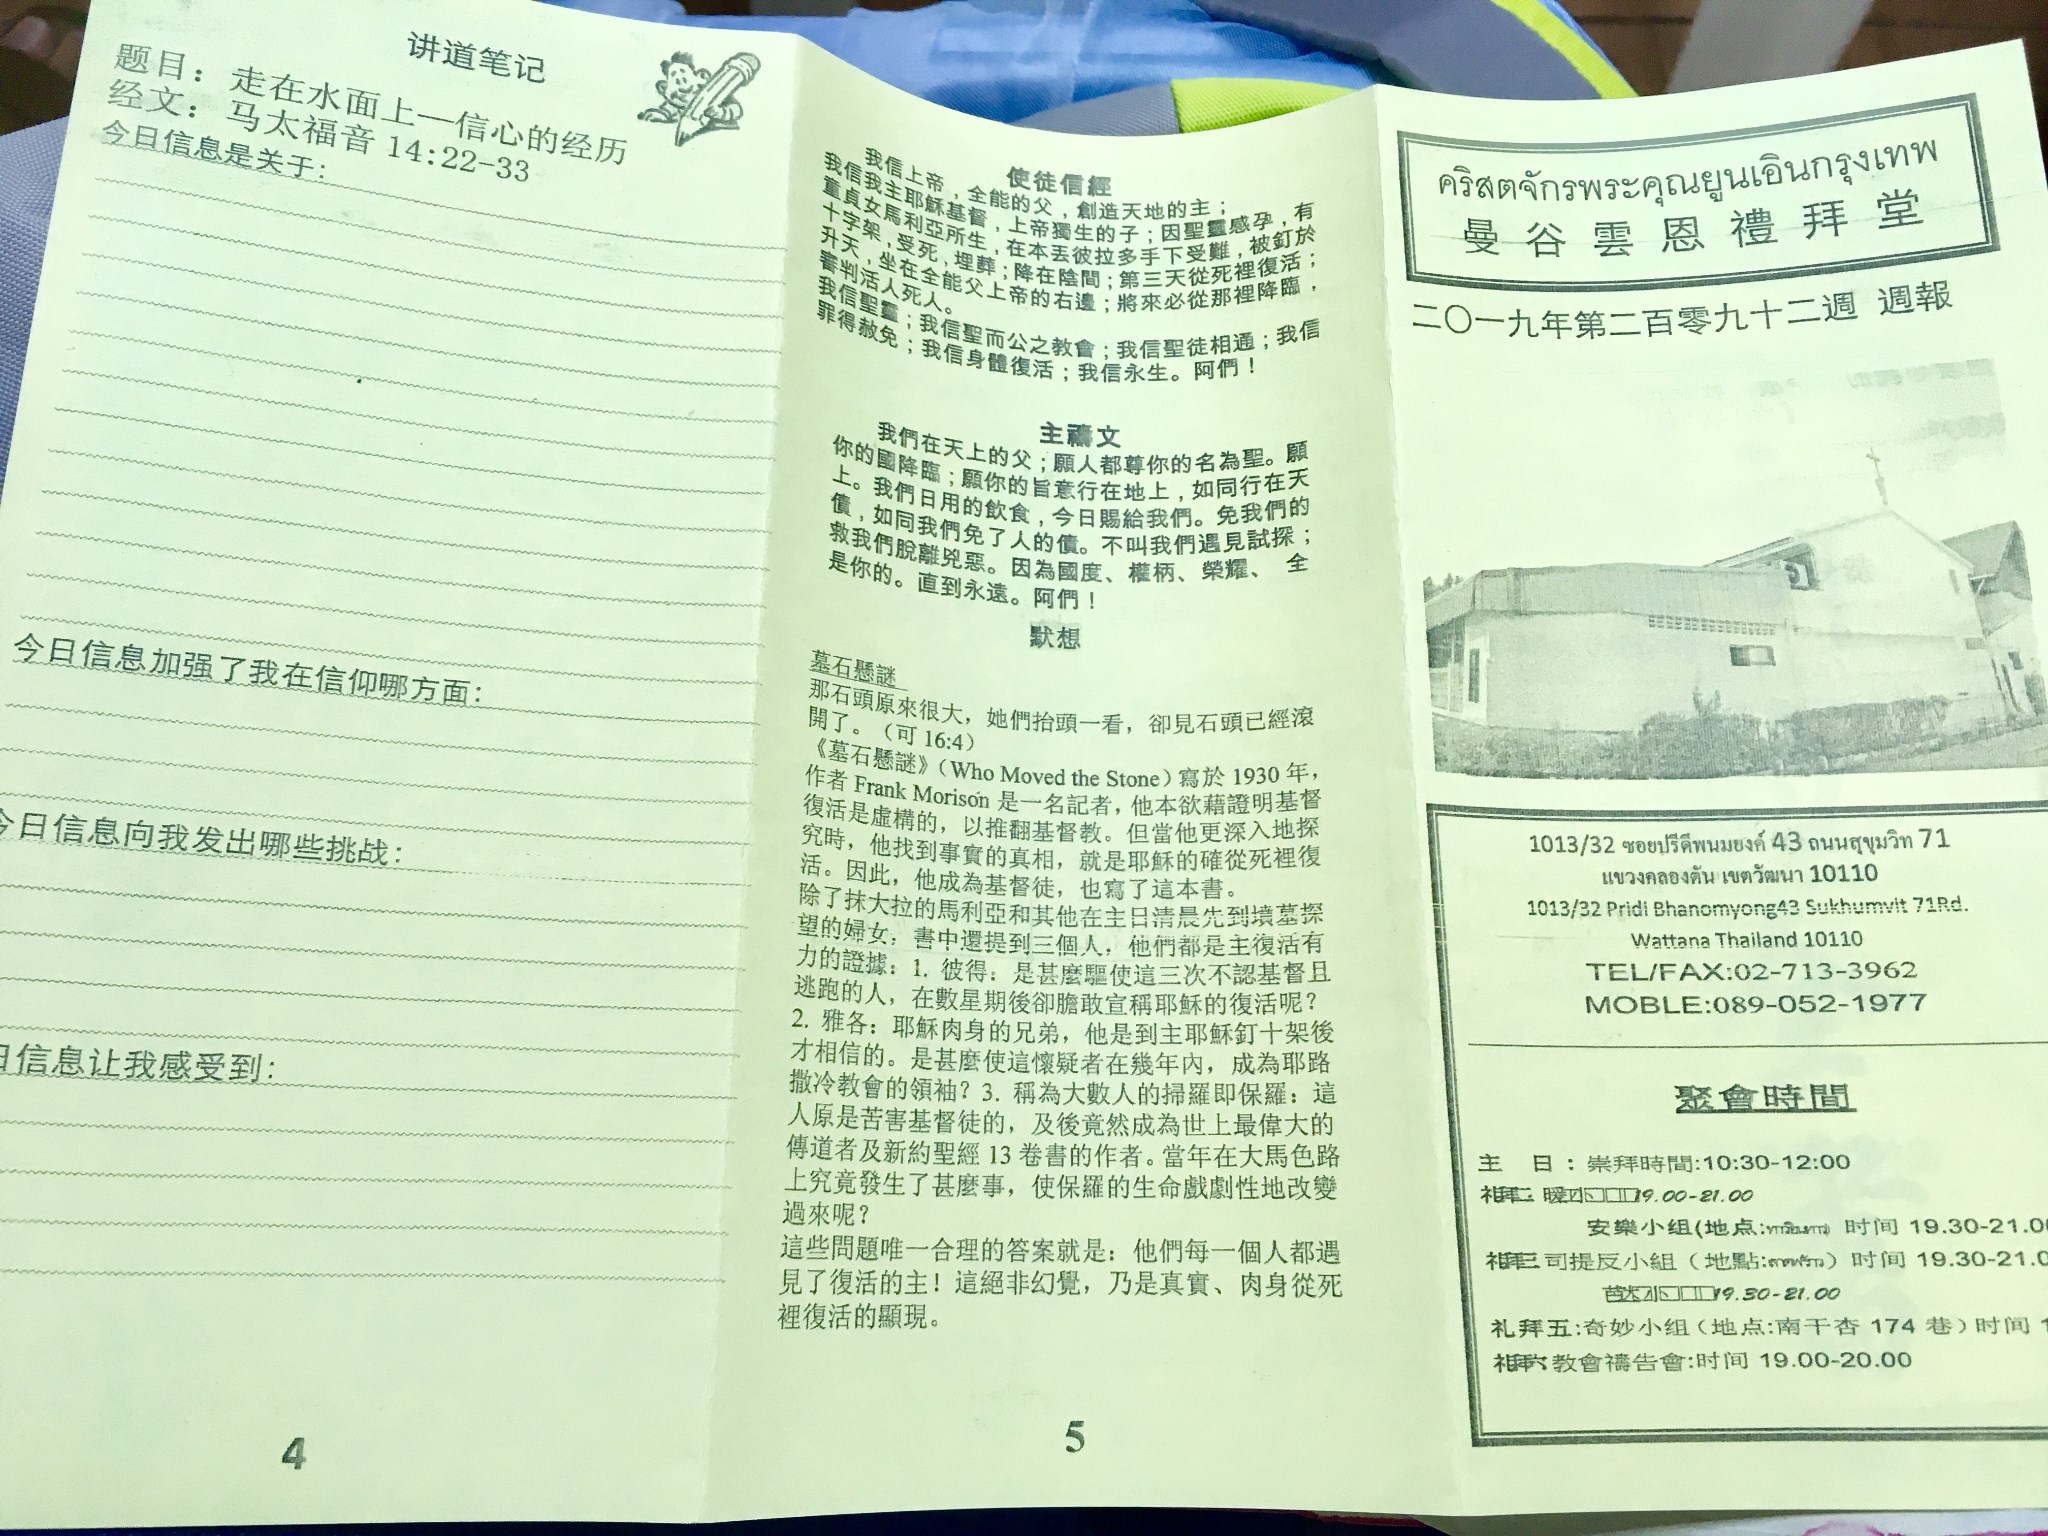 讲道笔记
题目：走在水面上—信心的经历
经文：马太福音 14:22-33
今日信息是关于:
今日信息加强了我在信仰哪方面:
今日信息向我发出哪些挑战:
日信息让我感受到:
4
使徒信經
我信上帝，全能的父，創造天地的主；
我信我主耶穌基督，上帝獨生的子；因聖靈感孕，有
童貞女馬利亞所生，在本丟彼拉多手下受難，被釘於
十字架，受死，埋葬；降在陰間；第三天從死裡復活；
升天，坐在全能父上帝的右邊；將來必從那裡降臨，
審判活人死人。
我信聖靈；我信聖而公之教會；我信聖徒相通；我信
罪得赦免；我信身體復活；我信永生。阿們！
主禱文
我們在天上的父；願人都尊你的名為聖。願
你的國降臨；願你的旨意行在地上，如同行在天
上。我們日用的飲食，今日賜給我們。免我們的
債，如同我們免了人的債。不叫我們遇見試探；
救我們脫離兇惡。因為國度、權柄、榮耀、 全
是你的。直到永遠。阿們！
默想
墓石懸謎
那石頭原來很大，她們抬頭一看，卻見石頭已經滾
開了。（可 16:4）
《墓石懸謎》（Who Moved the Stone）寫於 1930 年，
作者 Frank Morison 是一名記者，他本欲藉證明基督
復活是虛構的，以推翻基督教。但當他更深入地探
究時，他找到事實的真相，就是耶穌的確從死裡復
活。因此，他成為基督徒，也寫了這本書。
除了抹大拉的馬利亞和其他在主日清晨先到墳墓探
望的婦女，書中還提到三個人，他們都是主復活有
力的證據：1. 彼得：是甚麼驅使這三次不認基督且
逃跑的人，在數星期後卻膽敢宣稱耶穌的復活呢？
2. 雅各：耶穌肉身的兄弟，他是到主耶穌釘十架後
才相信的。是甚麼使這懷疑者在幾年內，成為耶路
撒冷教會的領袖？3. 稱為大數人的掃羅即保羅：這
人原是苦害基督徒的，及後竟然成為世上最偉大的
傳道者及新約聖經 13 卷書的作者。當年在大馬色路
上究竟發生了甚麼事，使保羅的生命戲劇性地改變
過來呢？
這些問題唯一合理的答案就是：他們每一個人都遇
見了復活的主！這絕非幻覺，乃是真實、肉身從死
裡復活的顯現。
5
คริสตจักรพระคุณยูนเอินกรุงเทพ
曼谷雲恩禮拜堂
二〇一九年第二百零九十二週 週報
1013/32 ซอยปรีดีพนมยงค์ 43 ถนนสุขุมวิท 71
แขวงคลองตัน เขตวัฒนา 10110
1013/32 Pridi Bhanomyong43 Sukhumvit 71Rd.
Wattana Thailand 10110
TEL/FAX:02-713-3962
MOBLE:089-052-1977
聚會時間
主 日：崇拜時間:10:30-12:00
19.00-21.00
安樂小组(地点: 时间 19.30-21.0
司提反小組（地點: ）时间 19.30-21.0
19.30-21.00
礼拜五:奇妙小组（地点:南干杏 174 巷）时间 1
教會禱告會:时间 19.00-20.00